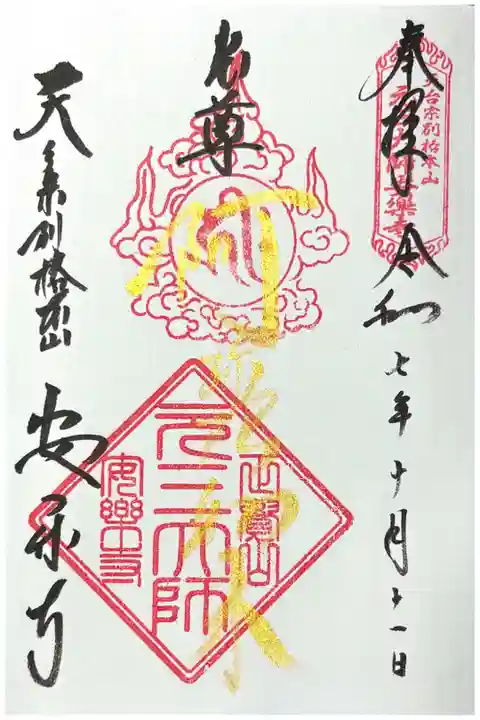 奉拝 令和七年十月十一日
天台宗別格本山
元三大師安樂寺
尊
正覺山
元三大師
安樂寺
天台宗別格本山 安楽寺